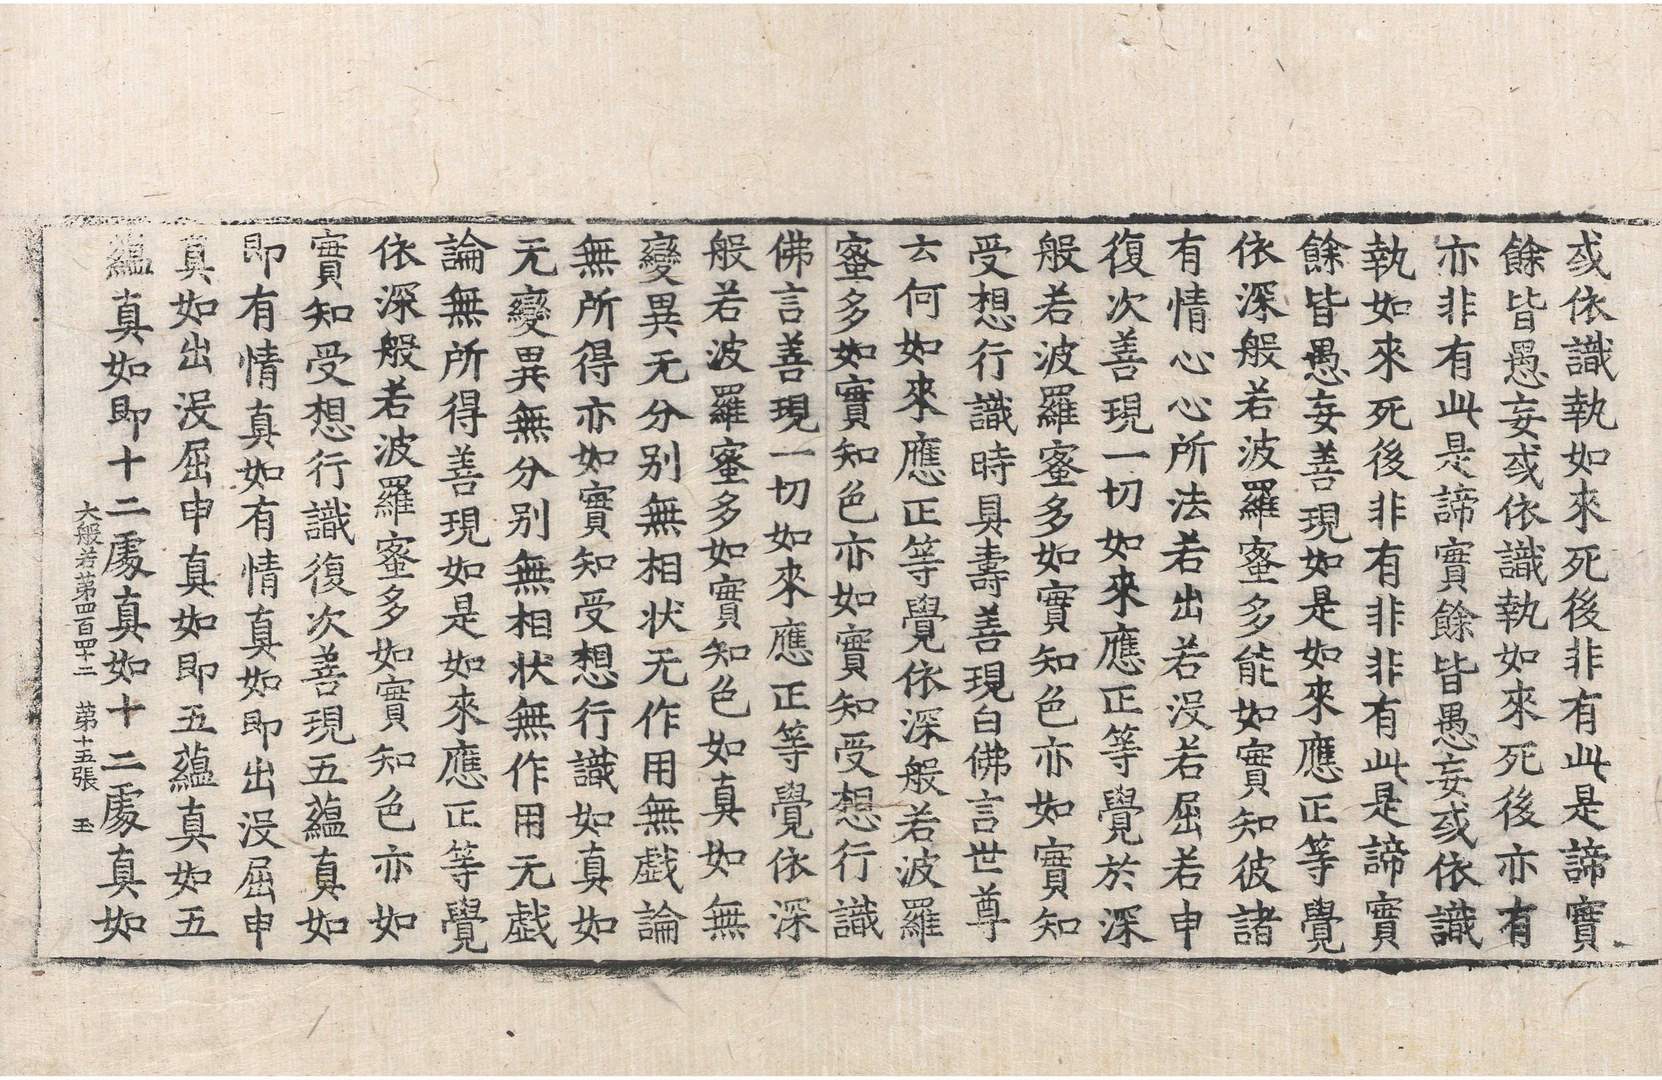 或依識執如來死後非有此是諦實
餘皆愚妄或依識執如來死後亦有
亦非有此是諦實餘皆愚妄或依識
執如來死後非有非非有此是諦實
餘皆愚妄善現如是如來應正等覺
依深般若波羅蜜多能如實知彼諸
有情心心所法若出若沒若屈若申
復次善現一切如來應正等覺於深
般若波羅蜜多如實知色亦如實知
受想行識時具壽善現白佛言世尊
云何如來應正等覺依深般若波羅
蜜多如實知色亦如實知受想行識
佛言善現一切如來應正等覺依深
般若波羅蜜多如實知色如真如無
變異无分別無相狀无作用無戲論
無所得亦如實知受想行識如真如
无變異無分別無相狀無作用无戲
論無所得善現如是如來應正等覺
依深般若波羅蜜多如實知色亦如
實知受想行識復次善現五蘊真如
即有情真如有情真如即出沒屈申
真如出沒屈申真如即五蘊真如五
蘊真如即十二處真如十二處真如
大般若第四百四十二 第十五張 玉